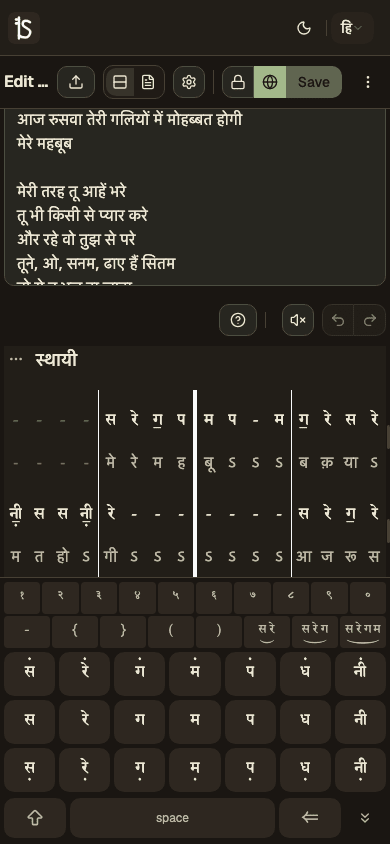 हि
Edit ...
Save
आज रुसवा तेरी गलियों में मोहब्बत होगी
मेरे महबूब
मेरी तरह तू आहें भरे
तू भी किसी से प्यार करे
और रहे वो तुझ से परे
तूने, ओ, सनम, ढाए हैं सितम
... स्थायी
- - - - स रे ग॒ प म प - म ग॒ रे स रे
- - - - मे रे म ह बू ऽ ऽ ऽ ब क़ या ऽ
नी़॒ स स नी़॒ रे - - - - - - - स रे ग॒ रे
म त हो ऽ गी ऽ ऽ ऽ ऽ ऽ ऽ ऽ आ ज रू स
१ २ ३ ४ ५ ६ ७ ८ ९ ०
- { } ( ) सरे सरेग सरेगम
सं रें गं मं पं धं नीं
स रे ग म प ध नी
स़ रे़ ग़ म़ प़ ध़ नी़
space